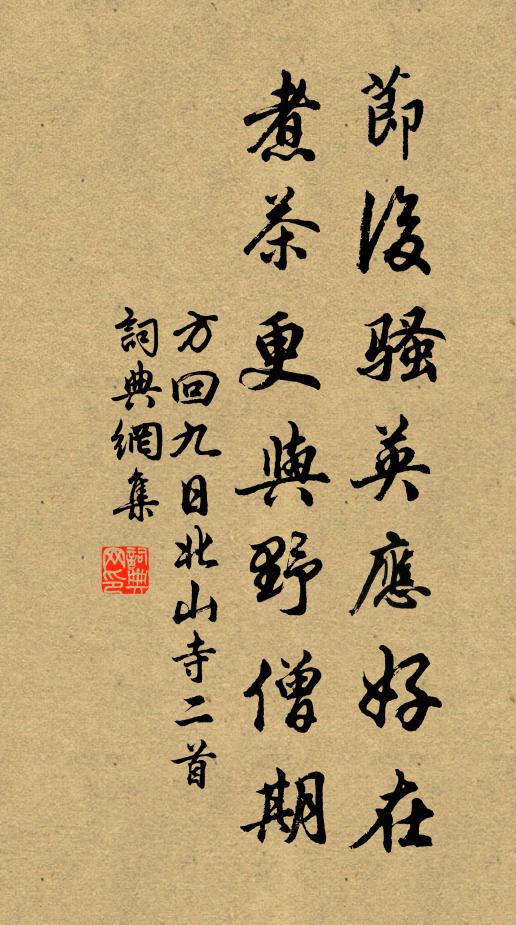 節後騷英應好在
煮茶更與野僧期
方回九日北山寺二首
詞典網集
詞典
网印